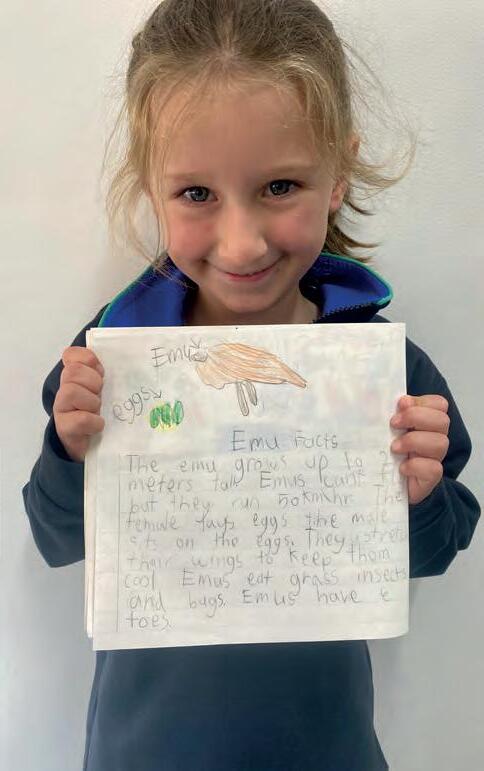 Emu
eggs
Emu Facts
The emu grows up to 2
meters tall Emus cant
but they run 50km/hr. The
female lays eggs the male
sits on the eggs. They stretch
their wings to keep them
cool Emus eat grass insects
and bugs. Emus have
toes.